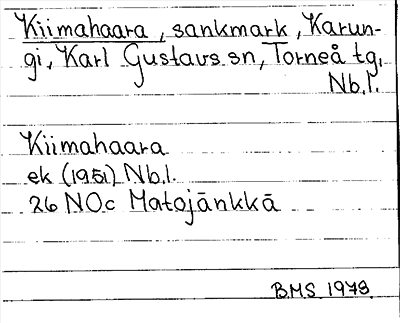 Kiimahaara, sankmark, Karun-
gi, Karl Gustavs sn, Torneå tg,
Nb.l.
Kiimahaara
ek (1951) Nb.l.
26 NOc Matojänkkä
BMS 1978